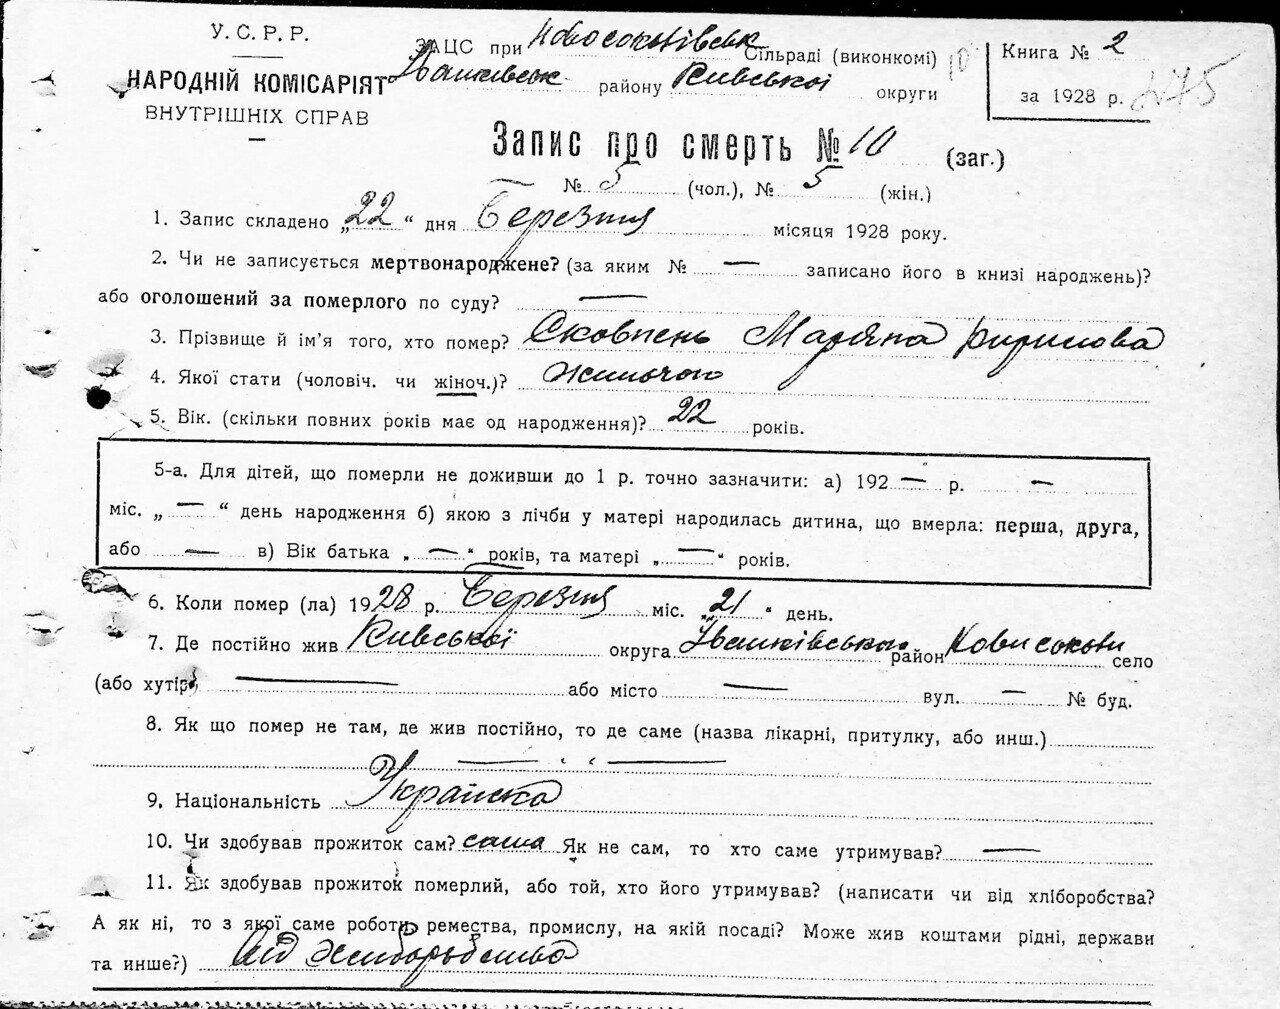 У. С. Р. Р.
НАРОДНІЙ КОМІСАРІЯТ
ВНУТРІШНІХ СПРАВ
ЗАЦС при Новосоколівськ Сільраді (виконкомі)
Іванківськ району Київської округи
10
Книга № 2
за 1928 р.
275
Запис про смерть № 10 (заг.)
№ 5 (чол.), № 5 (жін.)
1. Запис складено „22“ дня Березня місяця 1928 року.
2. Чи не записується мертвонароджене? (за яким № — записано його в книзі народжень)?
або оголошений за померлого по суду? —
3. Прізвище й ім'я того, хто помер? Сковпень Мар'яна Кирилова
4. Якої стати (чоловіч. чи жіноч.)? жиночого
5. Вік. (скільки повних років має од народження)? 22 років.
5-а. Для дітей, що померли не доживши до 1 р. точно зазначити: а) 192 — р. —
міс. „ — “ день народження б) якою з лічби у матері народилась дитина, що вмерла: перша, друга,
або — в) Вік батька „ — “ років, та матері „ — “ років.
6. Коли помер (ла) 1928 р. Березня міс. „21“ день.
7. Де постійно жив Київської округа Іванківського район Новисоколи село
(або хутір) — або місто — вул. — № буд.
8. Як що помер не там, де жив постійно, то де саме (назва лікарні, притулку, або инш.)
— „ —
9. Національність Українка
10. Чи здобував прожиток сам? сама Як не сам, то хто саме утримував? —
11. Як здобував прожиток померлий, або той, хто його утримував? (написати чи від хліборобства?
А як ні, то з якої саме роботи, ремества, промислу, на якій посаді? Може жив коштами рідні, держави
та инше?) Від Хлиборобства